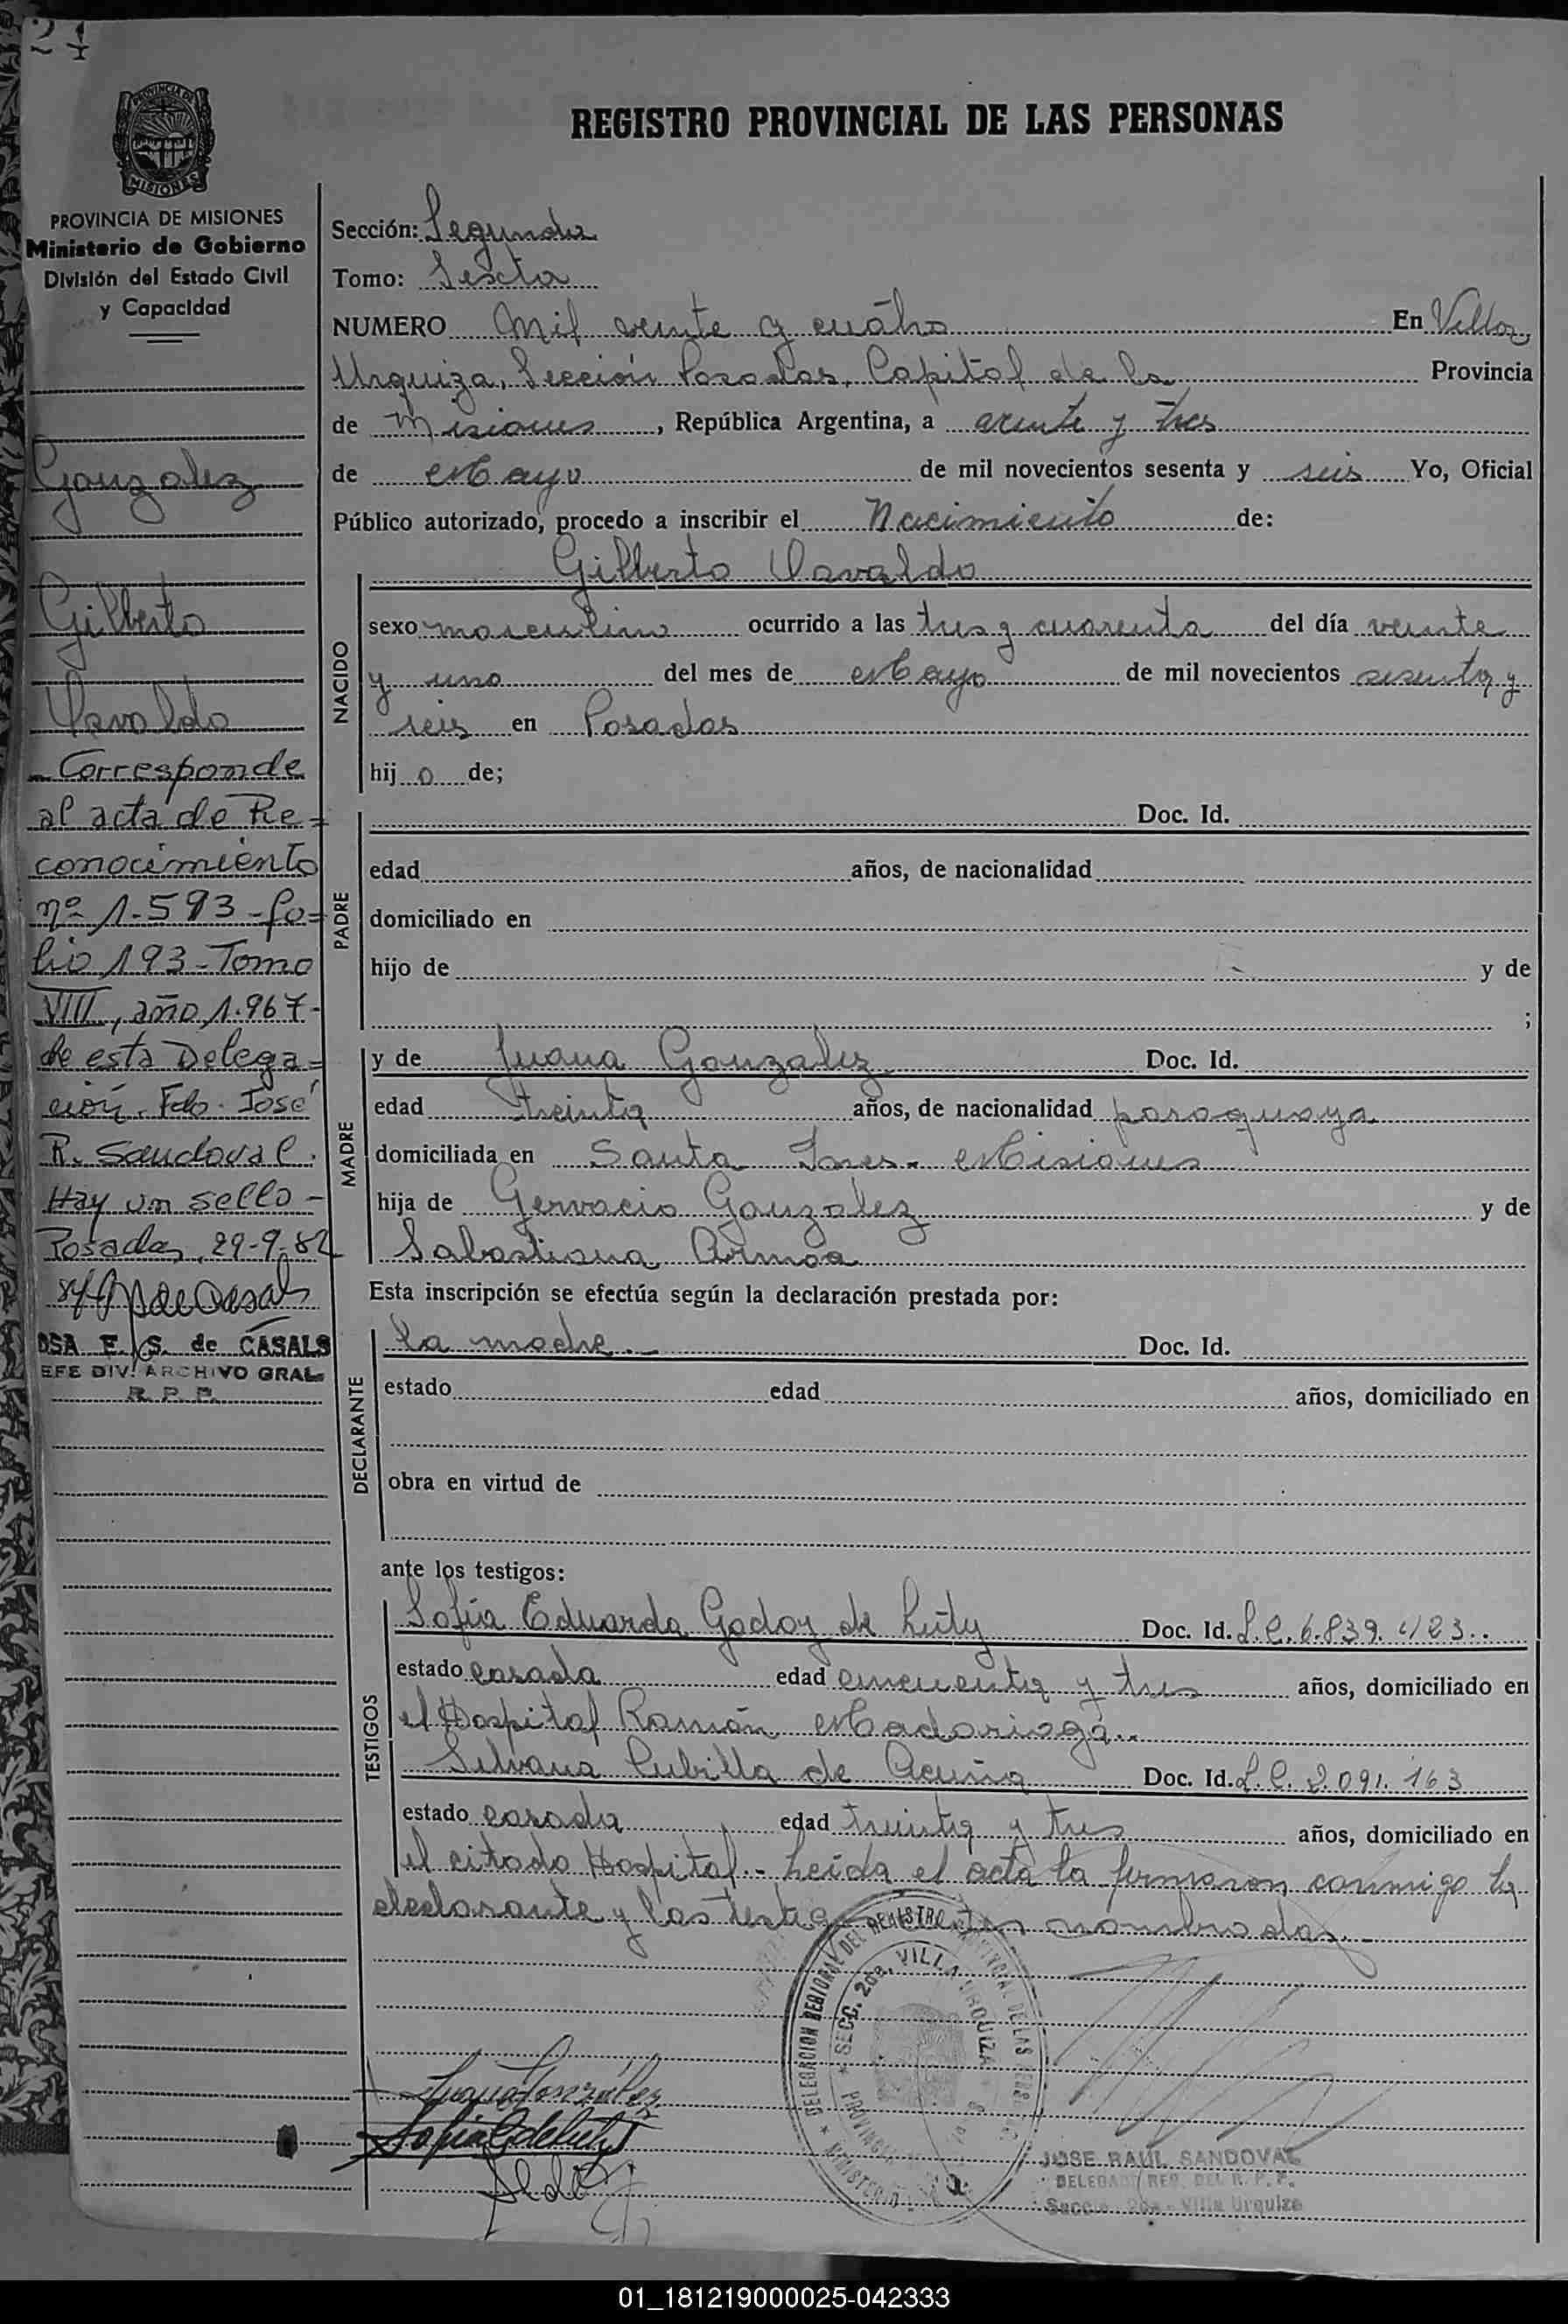 21
REGISTRO PROVINCIAL DE LAS PERSONAS
PROVINCIA DE MISIONES
PROVINCIA DE MISIONES
Ministerio de Gobierno
División del Estado Civil
y Capacidad
Gonzalez
Gilberto
Osvaldo
Corresponde
al acta de Re=
conocimiento
nº 1.593 - fo=
lio 193 - Tomo
VIII, año 1.967-
de esta Delega=
ción. Fdo. José
R. Sandoval.
Hay un sello -
Posadas, 29-9-82
OSA E. S. de CASALS
EFE DIV. ARCHIVO GRAL.
R. P. P.
Sección: Segunda
Tomo: Sexto
NUMERO Mil veinte y cuatro En Villa
Urquiza, Sección Posadas, Capital de la Provincia
de Misiones, República Argentina, a veinte y tres
de Mayo de mil novecientos sesenta y seis Yo, Oficial
Público autorizado, procedo a inscribir el Nacimiento de:
Gilberto Osvaldo
NACIDO
sexo masculino ocurrido a las tres y cuarenta del día veinte
y uno del mes de Mayo de mil novecientos sesenta y
seis en Posadas
hijo de;
PADRE
Doc. Id.
edad años, de nacionalidad
domiciliado en
hijo de y de
;
MADRE
y de Juana Gonzalez Doc. Id.
edad treinta años, de nacionalidad paraguaya
domiciliada en Santa Ines - Misiones
hija de Gervacio Gonzalez y de
Sabastiana Armoa
Esta inscripción se efectúa según la declaración prestada por:
DECLARANTE
la madre.- Doc. Id.
estado edad años, domiciliado en
obra en virtud de
ante los testigos:
TESTIGOS
Sofia Eduarda Godoy de Luty Doc. Id. L.C. 6.839.423..
estado casada edad cincuenta y tres años, domiciliado en
el Hospital Ramón Madariaga..
Silvana Cubilla de Acuña Doc. Id. L.C. 2.091.163
estado casada edad treinta y tres años, domiciliado en
el citado Hospital.- Leída el acta la firmaron conmigo la
declarante y las testigos nombradas.-
DELEGACION REGIONAL DEL REGISTRO PROVINCIAL DE LAS PERSONAS
SECC. 2da. VILLA URQUIZA
Juana González
JOSE RAUL SANDOVAL
DELEGADO REG. DEL R. P. P.
Secció 2da - Villa Urquiza
01_181219000025-042333